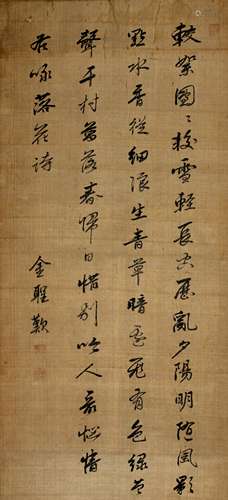 較絮團〻撲雪輕長空歷亂夕陽明隨風影
點水香從細浪生青草暗邊飛有色綠
聲干村萬落春歸日惜別吟人最愴情
右咏落花詩
金聖歎